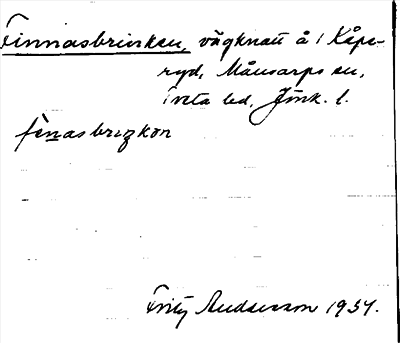 Finnasbrinken, vägknatt å 1 Kåpe-
ryd, Månsarps sn,
Tveta hd, Jönk. l.
fènasbriŋkən
Fritz Andersson 1934.